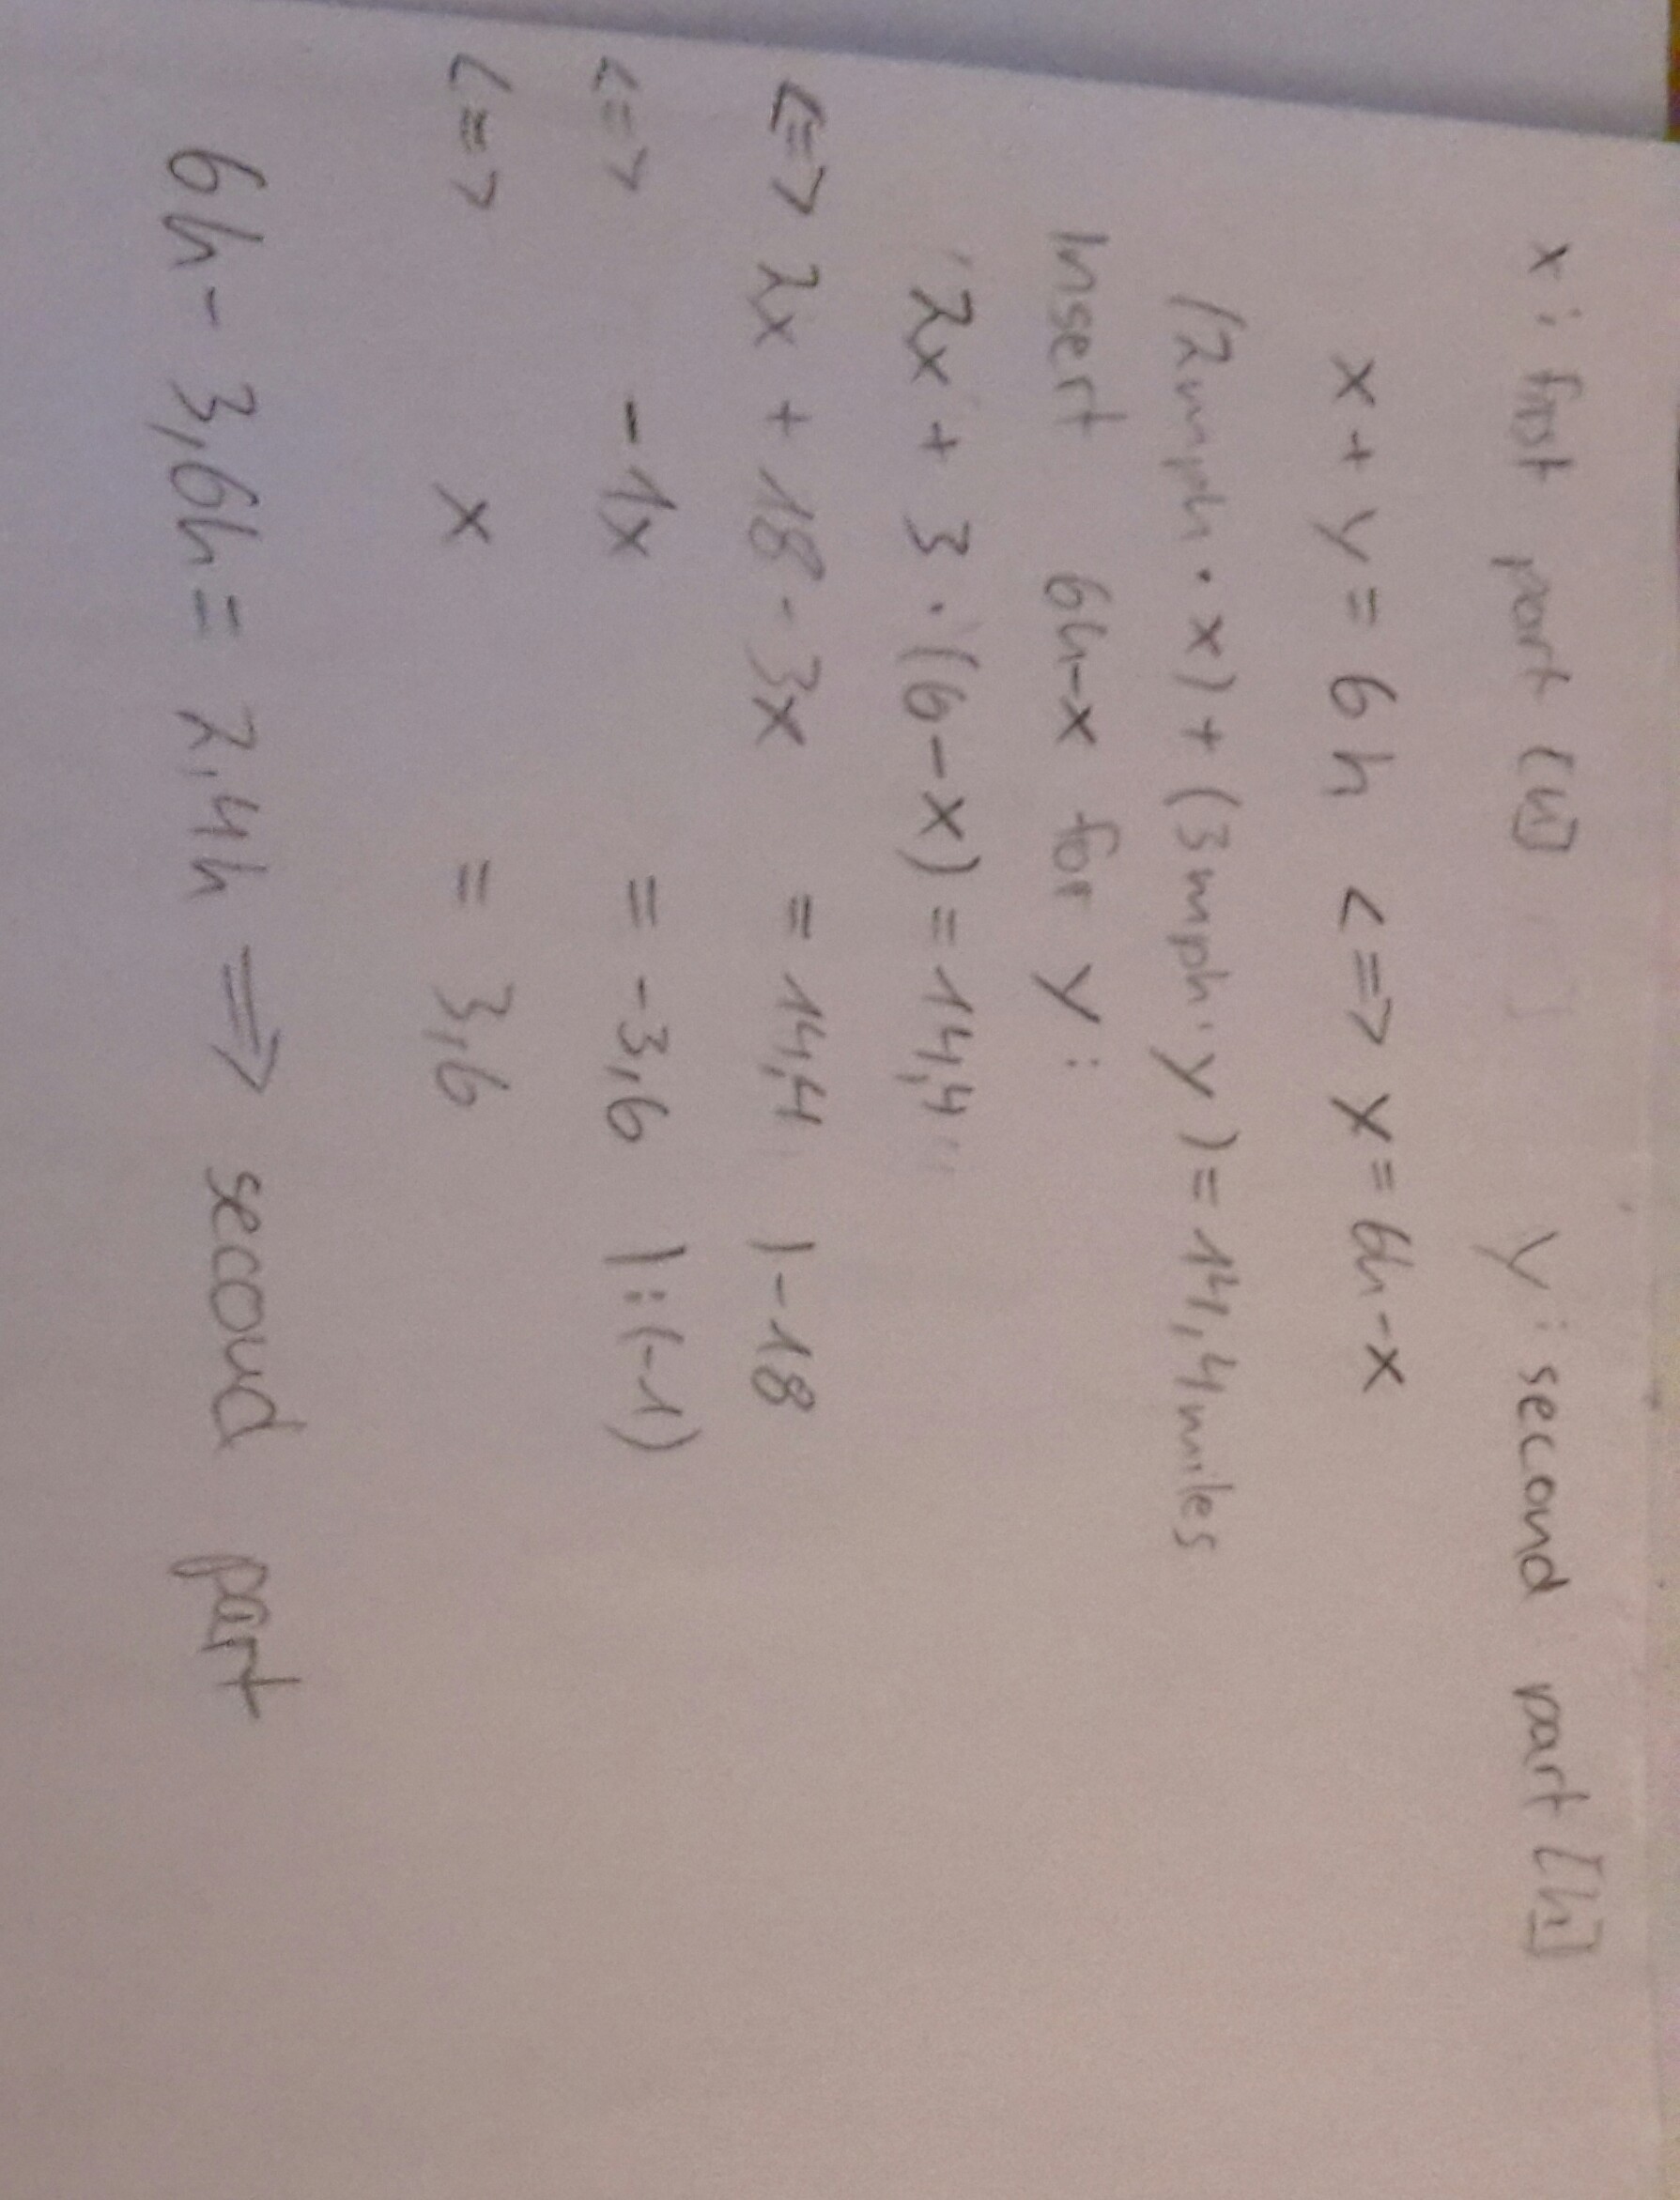 x: first part [h] y: second part [h]
x + y = 6h <=> y = 6h - x
(2mph · x) + (3mph · y) = 14,4miles
Insert 6h-x for y:
2x + 3 · (6-x) = 14,4
<=> 2x + 18 - 3x = 14,4 | -18
<=> -1x = -3,6 | : (-1)
<=> x = 3,6
6h - 3,6h = 2,4h => second part